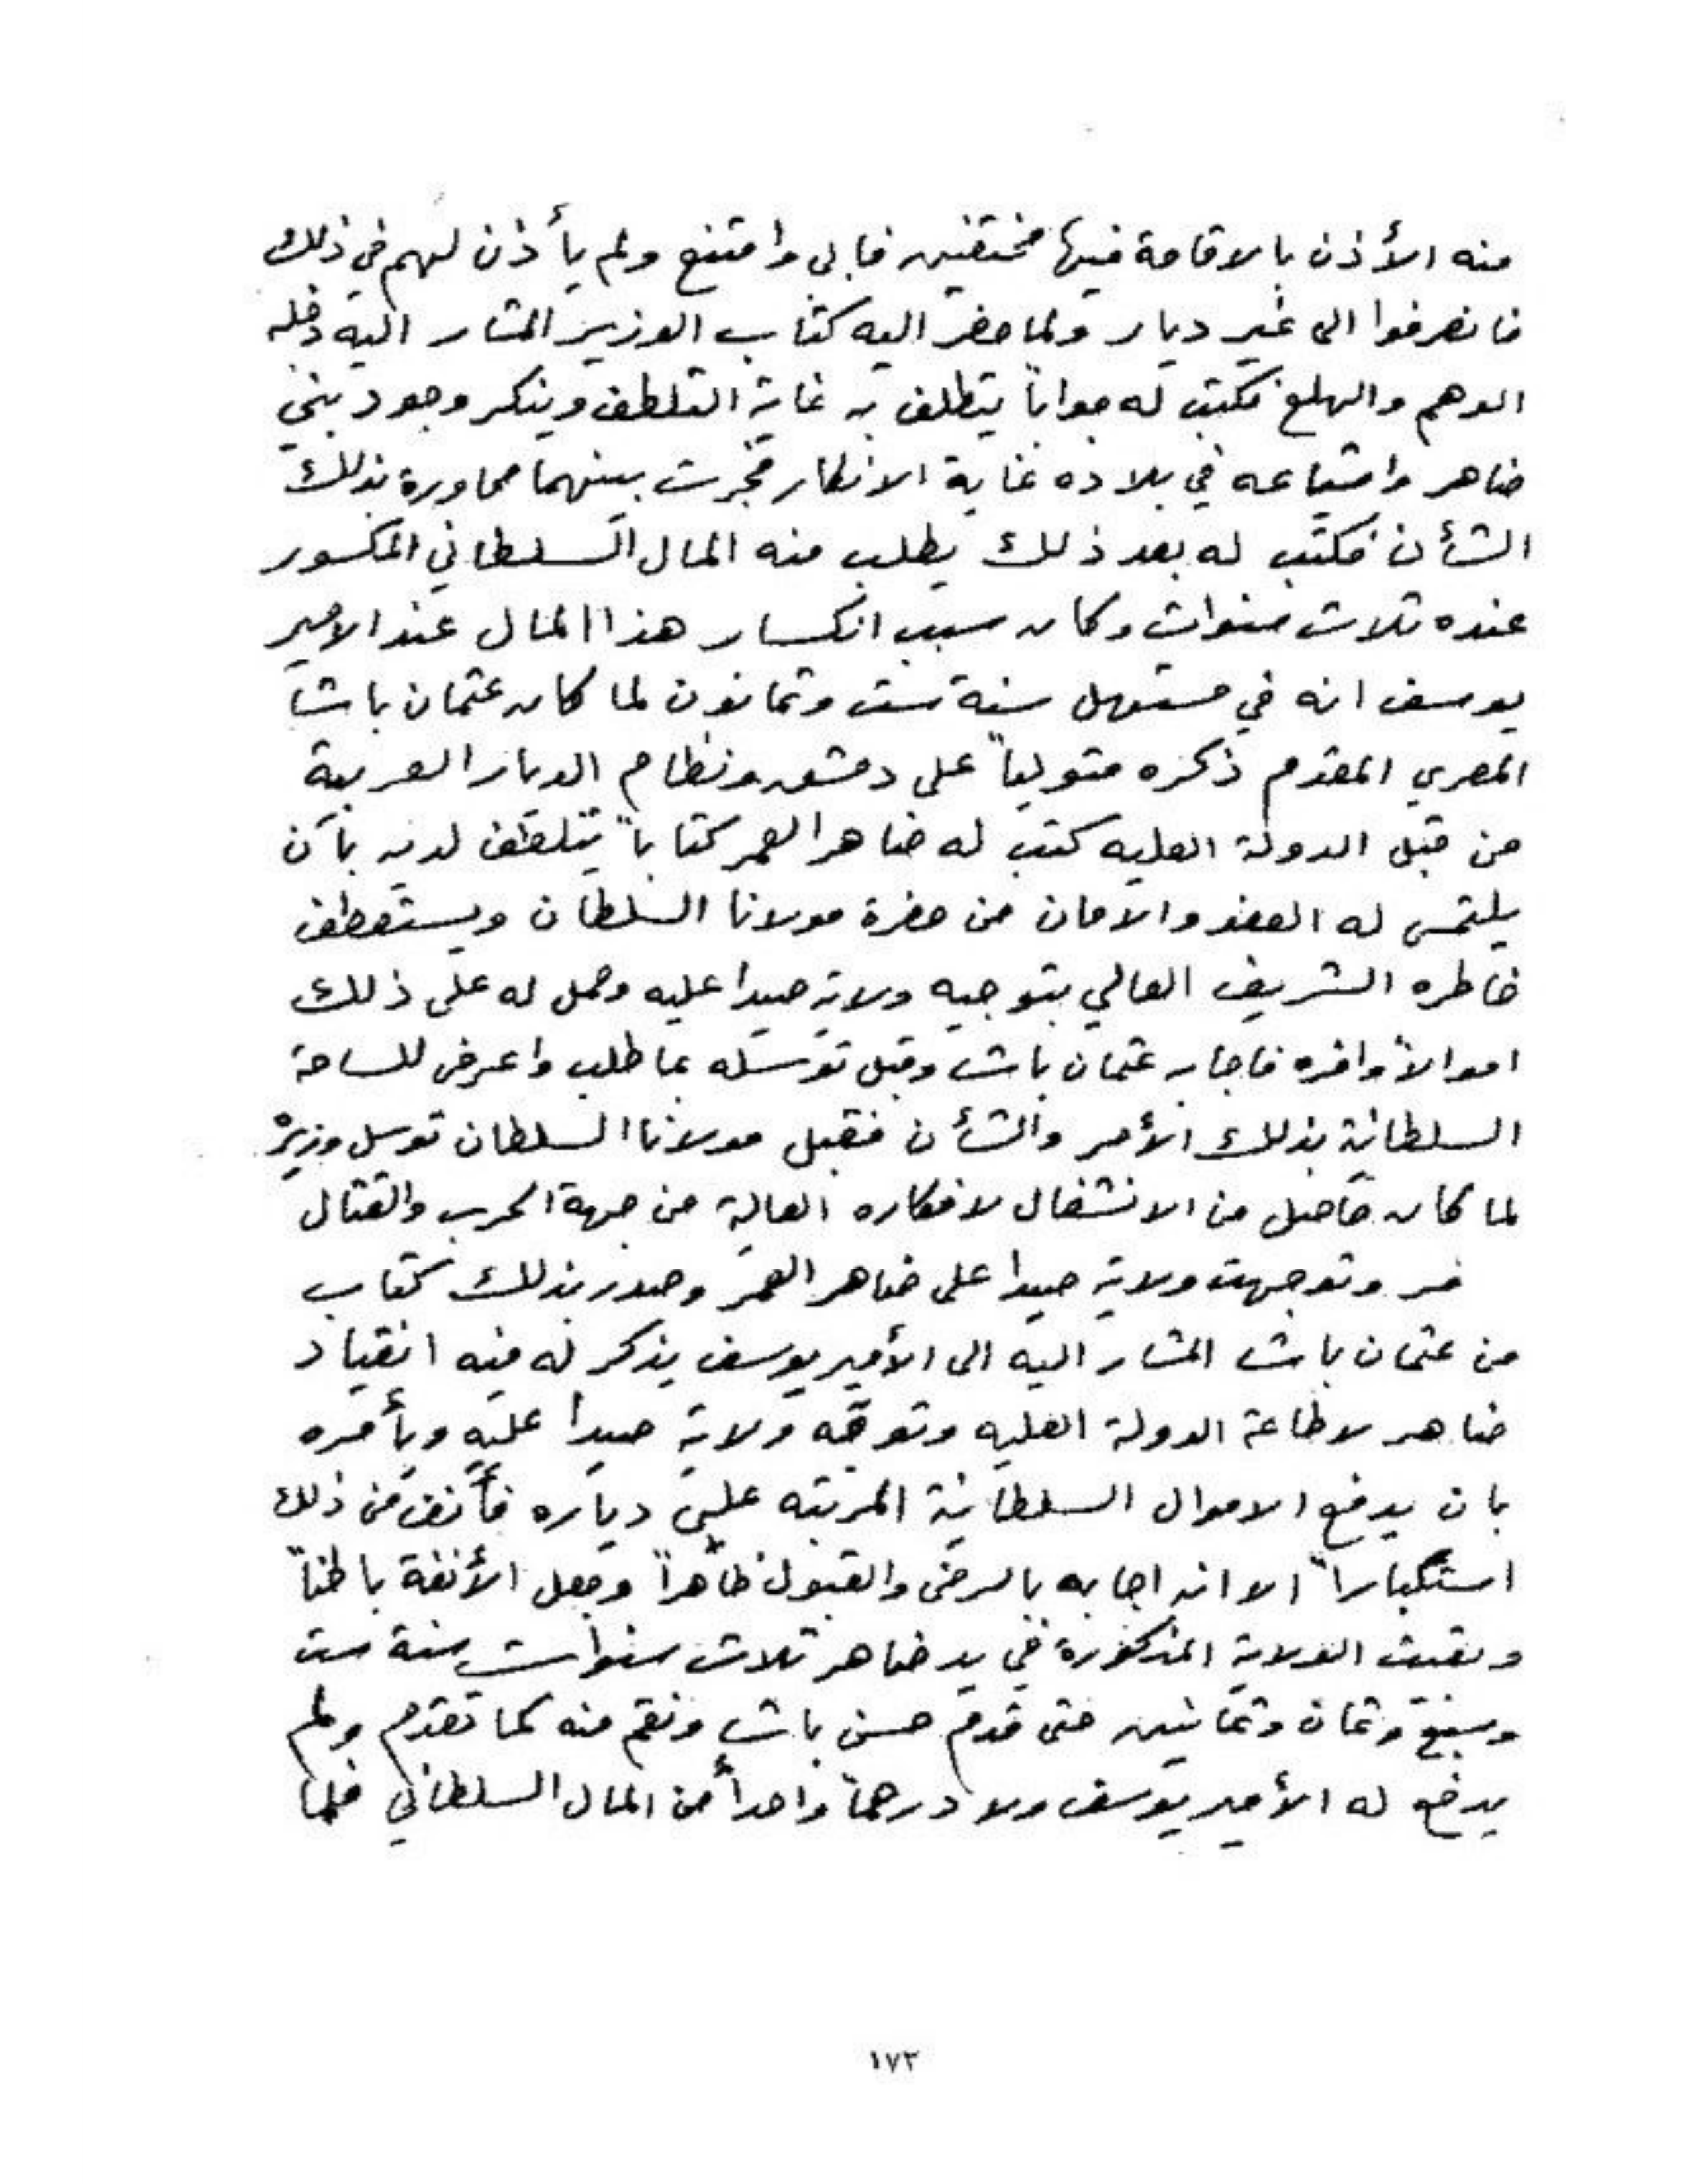 منه الأذن بالاقامة فيها مختفين فابى وامتنع ولم يأذن لهم في ذلك
فانصرفوا الى غير ديار ولما حضر اليه كتاب الوزير المشار اليه دخله
الوهم والهلع فكتب له جواباً يتطلف به غاية التلطف وينكر وجود بني
ضاهر واشياعه في بلاده غاية الانكار فجرت بينهما محاورة بذلك
الشأن فكتب له بعد ذلك يطلب منه المال السلطاني المكسور
عنده ثلاث سنوات وكان سبب انكسار هذا المال عند الامير
يوسف انه في مستهل سنة ست وثمانون لما كان عثمان باشا
المصري المقدم ذكره متولياً على دمشق ونظام الديار العربية
من قبل الدولة العليه كتب له ضاهر العمر كتاباً يتلطف لديه بأن
يلتمس له العفو والامان من حضرة مولانا السلطان ويستعطف
خاطره الشريف العالي بتوجيه ولاية صيدا عليه وحمل له على ذلك
اموالاً وافره فاجابه عثمان باشا وقبل توسله بما طلب واعرض للساحة
السلطانية بذلك الأمر والشأن فقبل مولانا السلطان توسل وزيره
لما كان حاصل من الانشغال لافكاره العالية من جهة الحرب والقتال
وتوجهت ولاية صيدا على ضاهر العمر وصدر بذلك كتاب
من عثمان باشا المشار اليه الى الأمير يوسف يذكر له فيه انقياد
ضاهر لاطاعة الدولة العليه وتوجه ولاية صيدا عليه ويأمره
بان يدفع الاموال السلطانية المرتبه على دياره فأنف من ذلك
استكباراً الا انه اجابه بالرضى والقبول ظاهراً وجعل الأنفة باطناً
وبقيت الولاية المذكورة في يد ضاهر ثلاث سنوات سنة ست
وسبع وثمان وثمانين حتى قدم حسن باشا ونقم منه كما تقدم ولم
يدفع له الأمير يوسف ولا درهماً واحداً من المال السلطاني فلما
١٧٣